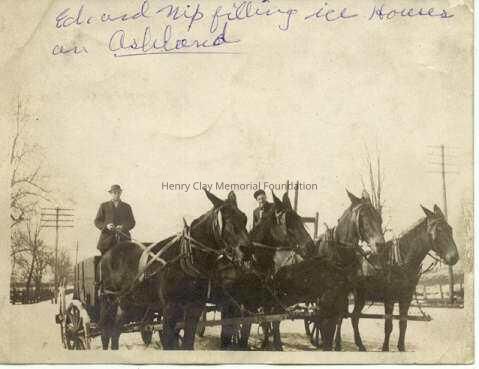 Edward Nip filling ice Houses
on Ashland
Henry Clay Memorial Foundation